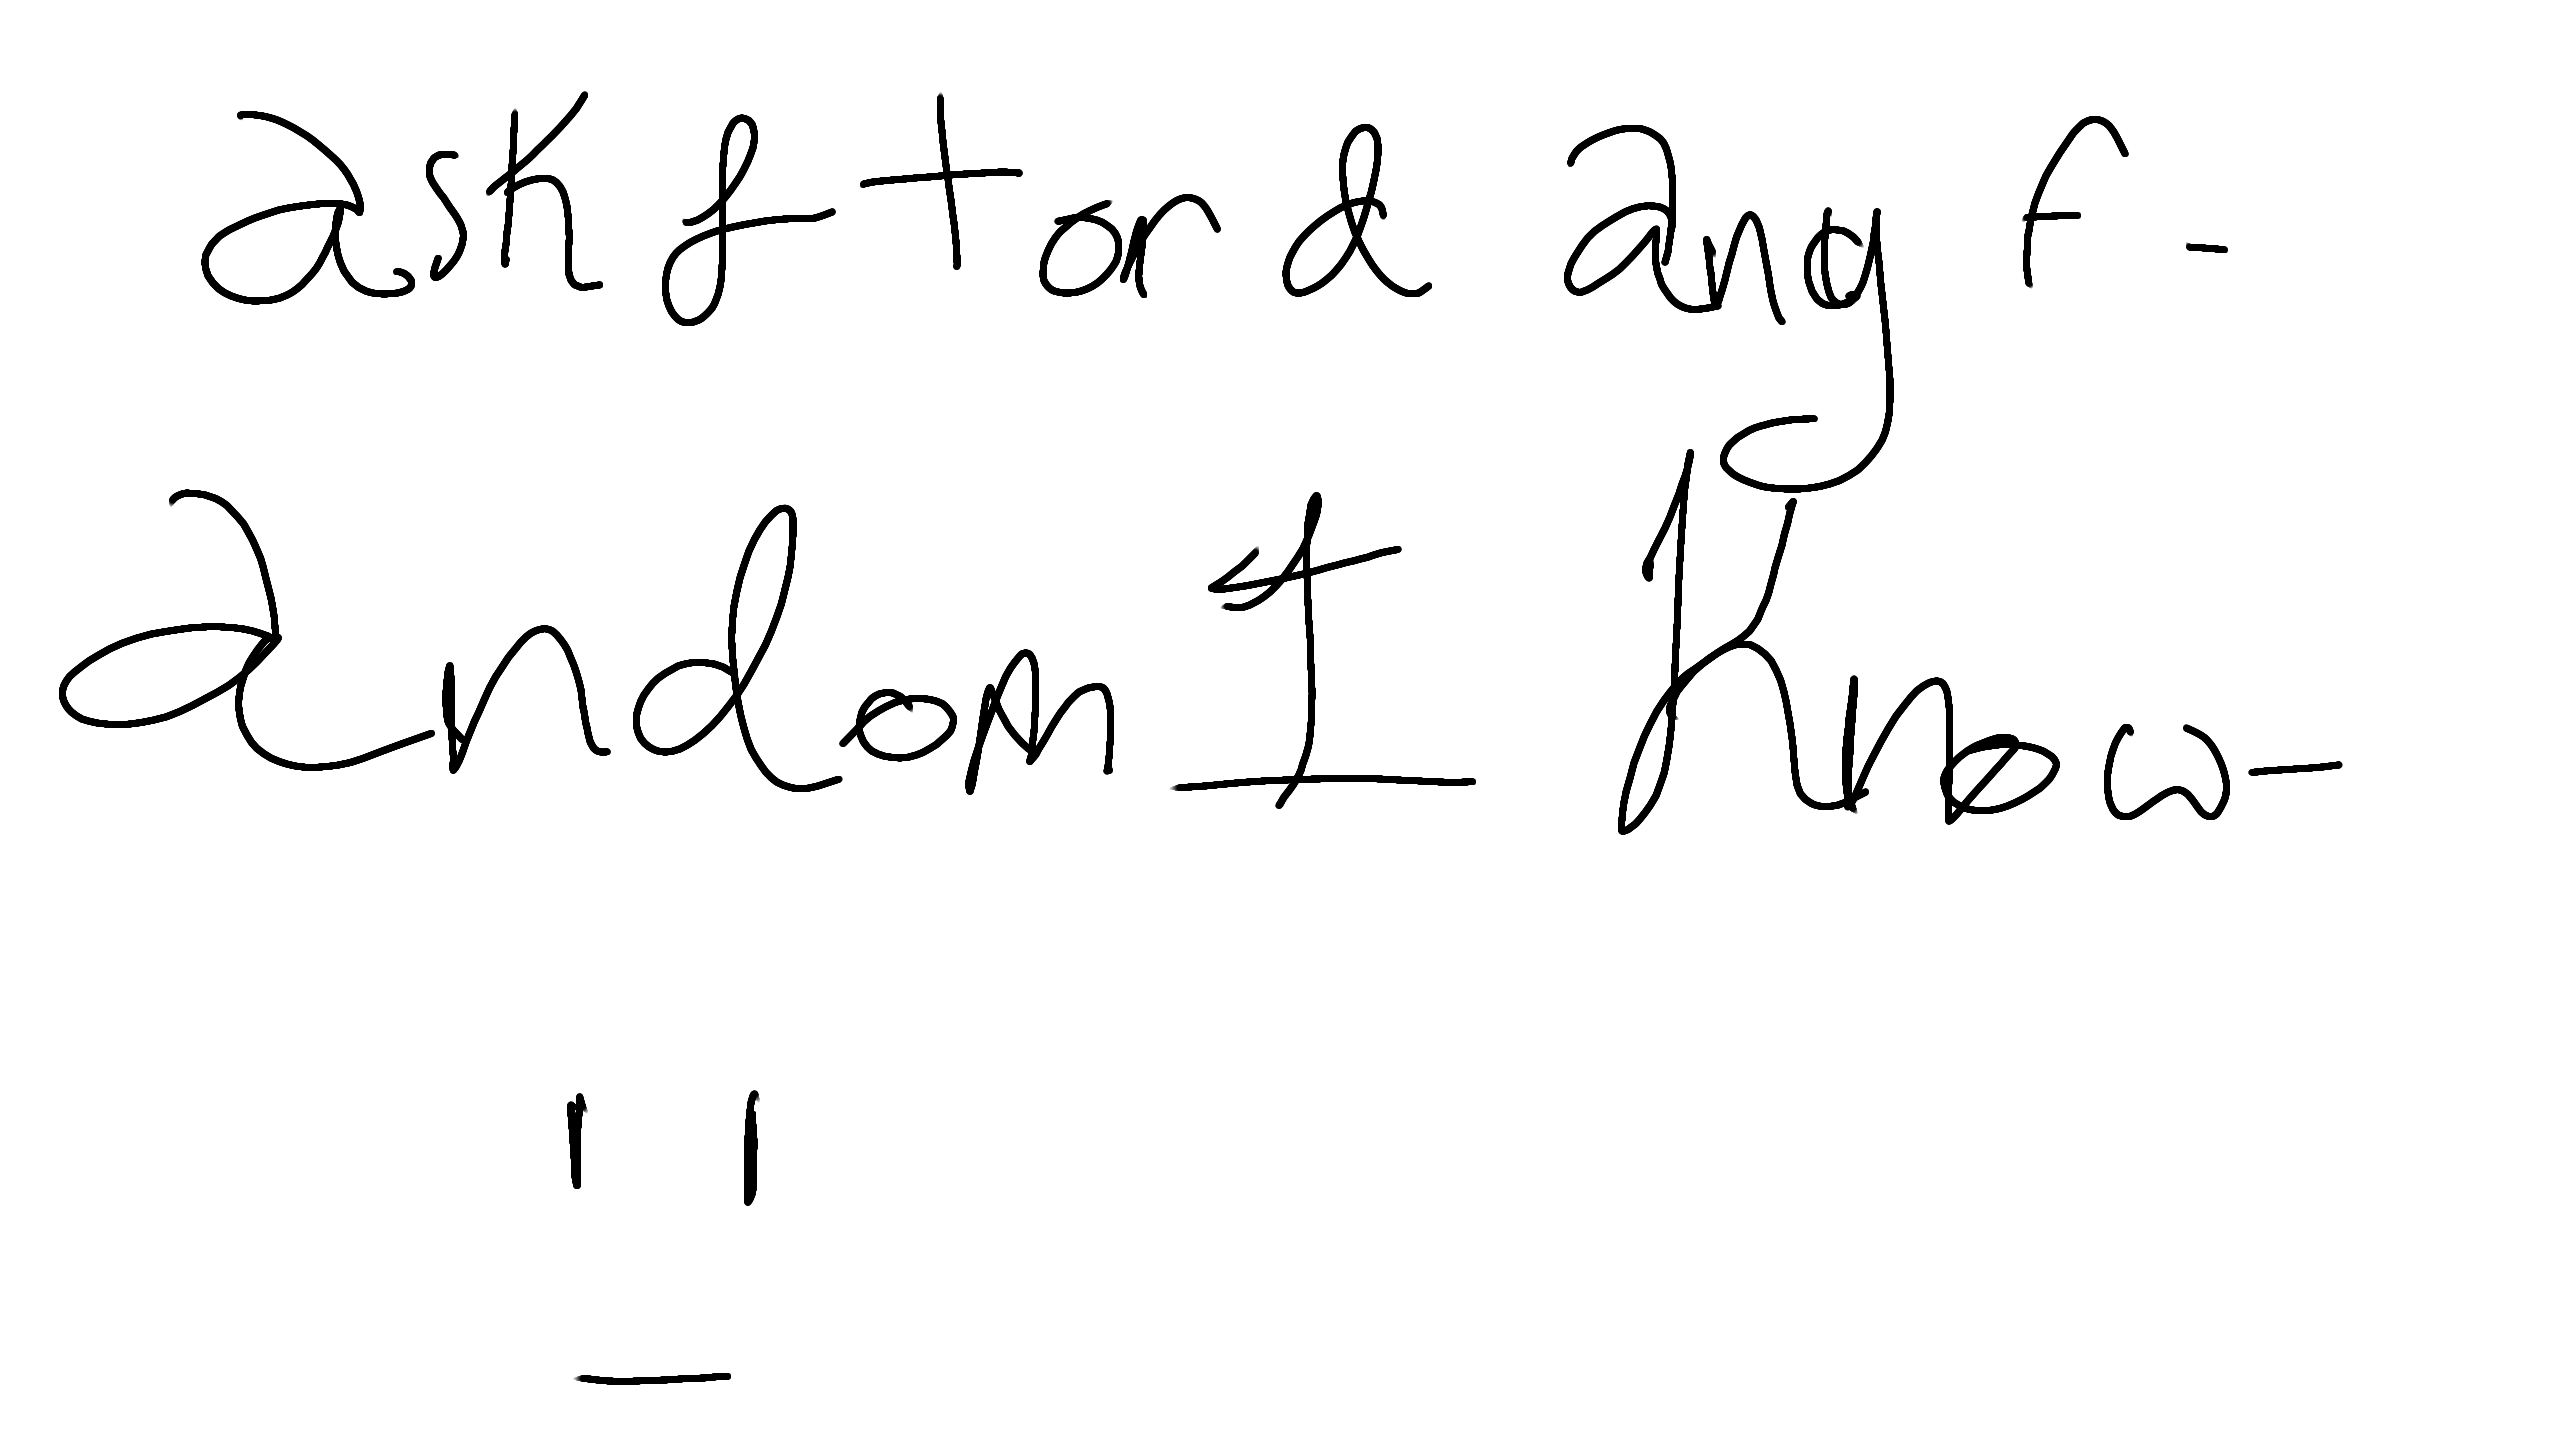 ask f t or d any f -
andom I know-